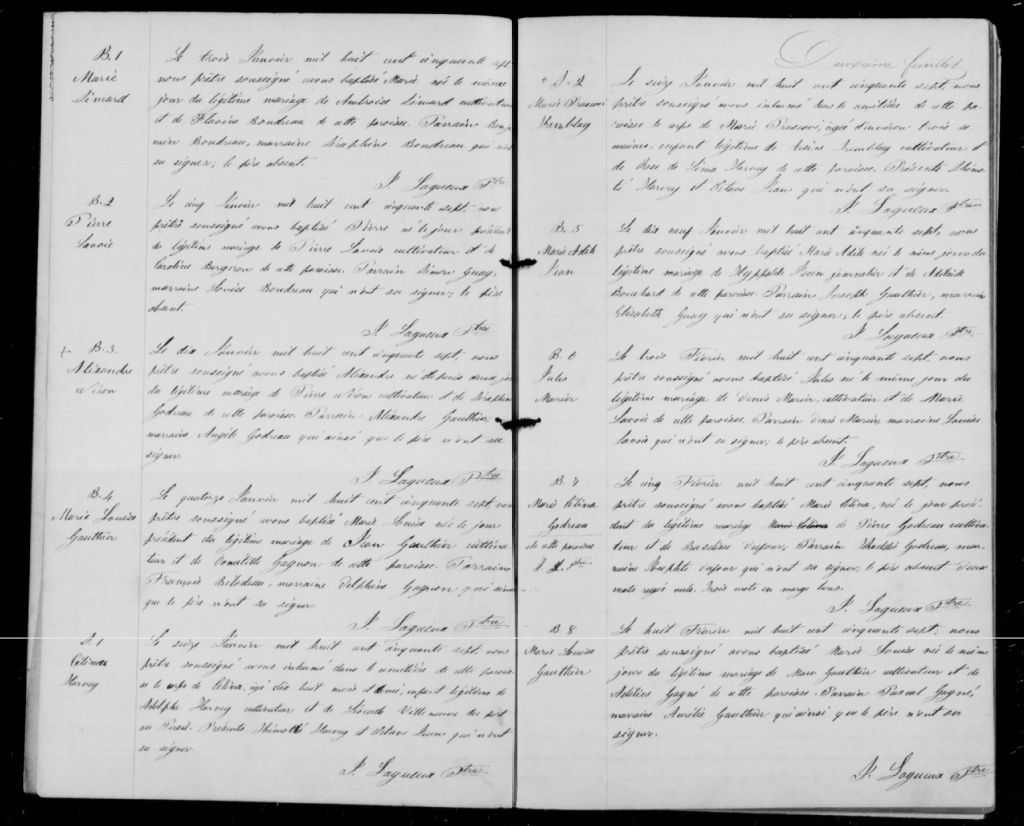 B.1
Marie
Simard
Le trois Janvier mil huit cent cinquante sept
nous prêtre soussigné avons baptisé Marie née le même
jour du légitime mariage de Ambroise Simard cultivateur
et de Flavie Boudreau de cette paroisse. Parrain Benja
min Boudreau, marraine Séraphine Boudreau qui n'ont
su signer; le père absent.
J. Lagueux Ptre
B.2
Pierre
Savoie
Le cinq Janvier mil huit cent cinquante sept, nous
prêtre soussigné avons baptisé Pierre né le jour précédent
du légitime mariage de Pierre Savoie cultivateur et de
Caroline Bergeron de cette paroisse. Parrain Simon Guay,
marraine Louise Boudreau qui n'ont su signer; le père
absent.
J. Lagueux Ptre
+ B.3.
Alexandre
Néron
Le dix Janvier mil huit cent cinquante sept, nous
prêtre soussigné avons baptisé Alexandre né depuis deux jours
du légitime mariage de Pierre Néron cultivateur et de Séraphine
Godreau de cette paroisse. Parrain Alexandre Gauthier,
marraine Angèle Godreau qui ainsi que le père n'ont su
signer.
J. Lagueux Ptre
B.4
Marie Louise
Gauthier
Le quatorze Janvier mil huit cent cinquante sept, nous
prêtre soussigné avons baptisé Marie Louise née le jour
précédent du légitime mariage de Jean Gauthier cultiva
teur et de Domitilde Gagnon de cette paroisse. Parrain
François Bilodeau, marraine Delphine Gagnon qui ainsi
que le père n'ont su signer.
J. Lagueux Ptre
S.1
Célina
Harvey
Le seize Janvier mil huit cent cinquante sept, nous
prêtre soussigné avons inhumé dans le cimetière de cette parois
se le corps de Célina, agé dix huit mois et demi, enfant légitime de
Adolphe Harvey cultivateur et de Villeneuve du post
au Persil. Présents Thimothé Harvey et Octave Jean qui n'ont
su signer.
J. Lagueux Ptre
Deuxième feuillet
+ S.2
Marie Prascovie
Tremblay
Le seize Janvier mil huit cent cinquante sept, nous
prêtre soussigné avons inhumé dans le cimetière de cette pa
roisse le corps de Marie Prascovie, agée d'environ trois se
maines, enfant légitime de Arsène Tremblay cultivateur et
de Rose de Lima Harvey de cette paroisse. Présents Thimo
té Harvey et Octave Jean qui n'ont su signer.
J. Lagueux Ptre
B.5
Marie Adèle
Jean
Le dix neuf Janvier mil huit cent cinquante sept, nous
prêtre soussigné avons baptisé Marie Adèle née le même jour du
légitime mariage de Hyppolite Jean journalier et de Adélaïde
Bouchard de cette paroisse. Parrain Joseph Gauthier, marraine
Elisabeth Guay qui n'ont su signer; le père absent.
J. Lagueux Ptre
B.6
Jules
Morier
Le trois Février mil huit cent cinquante sept, nous
prêtre soussigné avons baptisé Jules né le même jour du
légitime mariage de Denis Morier, cultivateur et de Marie
Savoie de cette paroisse. Parrain Denis Morier, marraine Louise
Savoie qui n'ont su signer; le père absent.
J. Lagueux Ptre
B.7
Marie Célina
Godreau
de cette paroisse
J. L. ptre
Le cinq Février mil huit cent cinquante sept, nous
prêtre soussigné avons baptisé Marie Célina, née le jour précé
dent du légitime mariage Marie Célina de Pierre Godreau cultiva
teur et de Basélisse Dufour, Parrain Thaddée Godreau, mar
raine Josephte Dufour qui n'ont su signer; le père absent. Deux
mots rayés nuls. Trois mots en marge bons.
J. Lagueux Ptre
B.8
Marie Louise
Gauthier
Le huit Février mil huit cent cinquante sept, nous
prêtre soussigné avons baptisé Marie Louise née le même
jour du légitime mariage de Marc Gauthier cultivateur et de
Adeline Gagné de cette paroisse. Parrain Pascal Gagné,
marraine Aurélie Gauthier qui ainsi que le père n'ont su
signer.
J. Lagueux Ptre